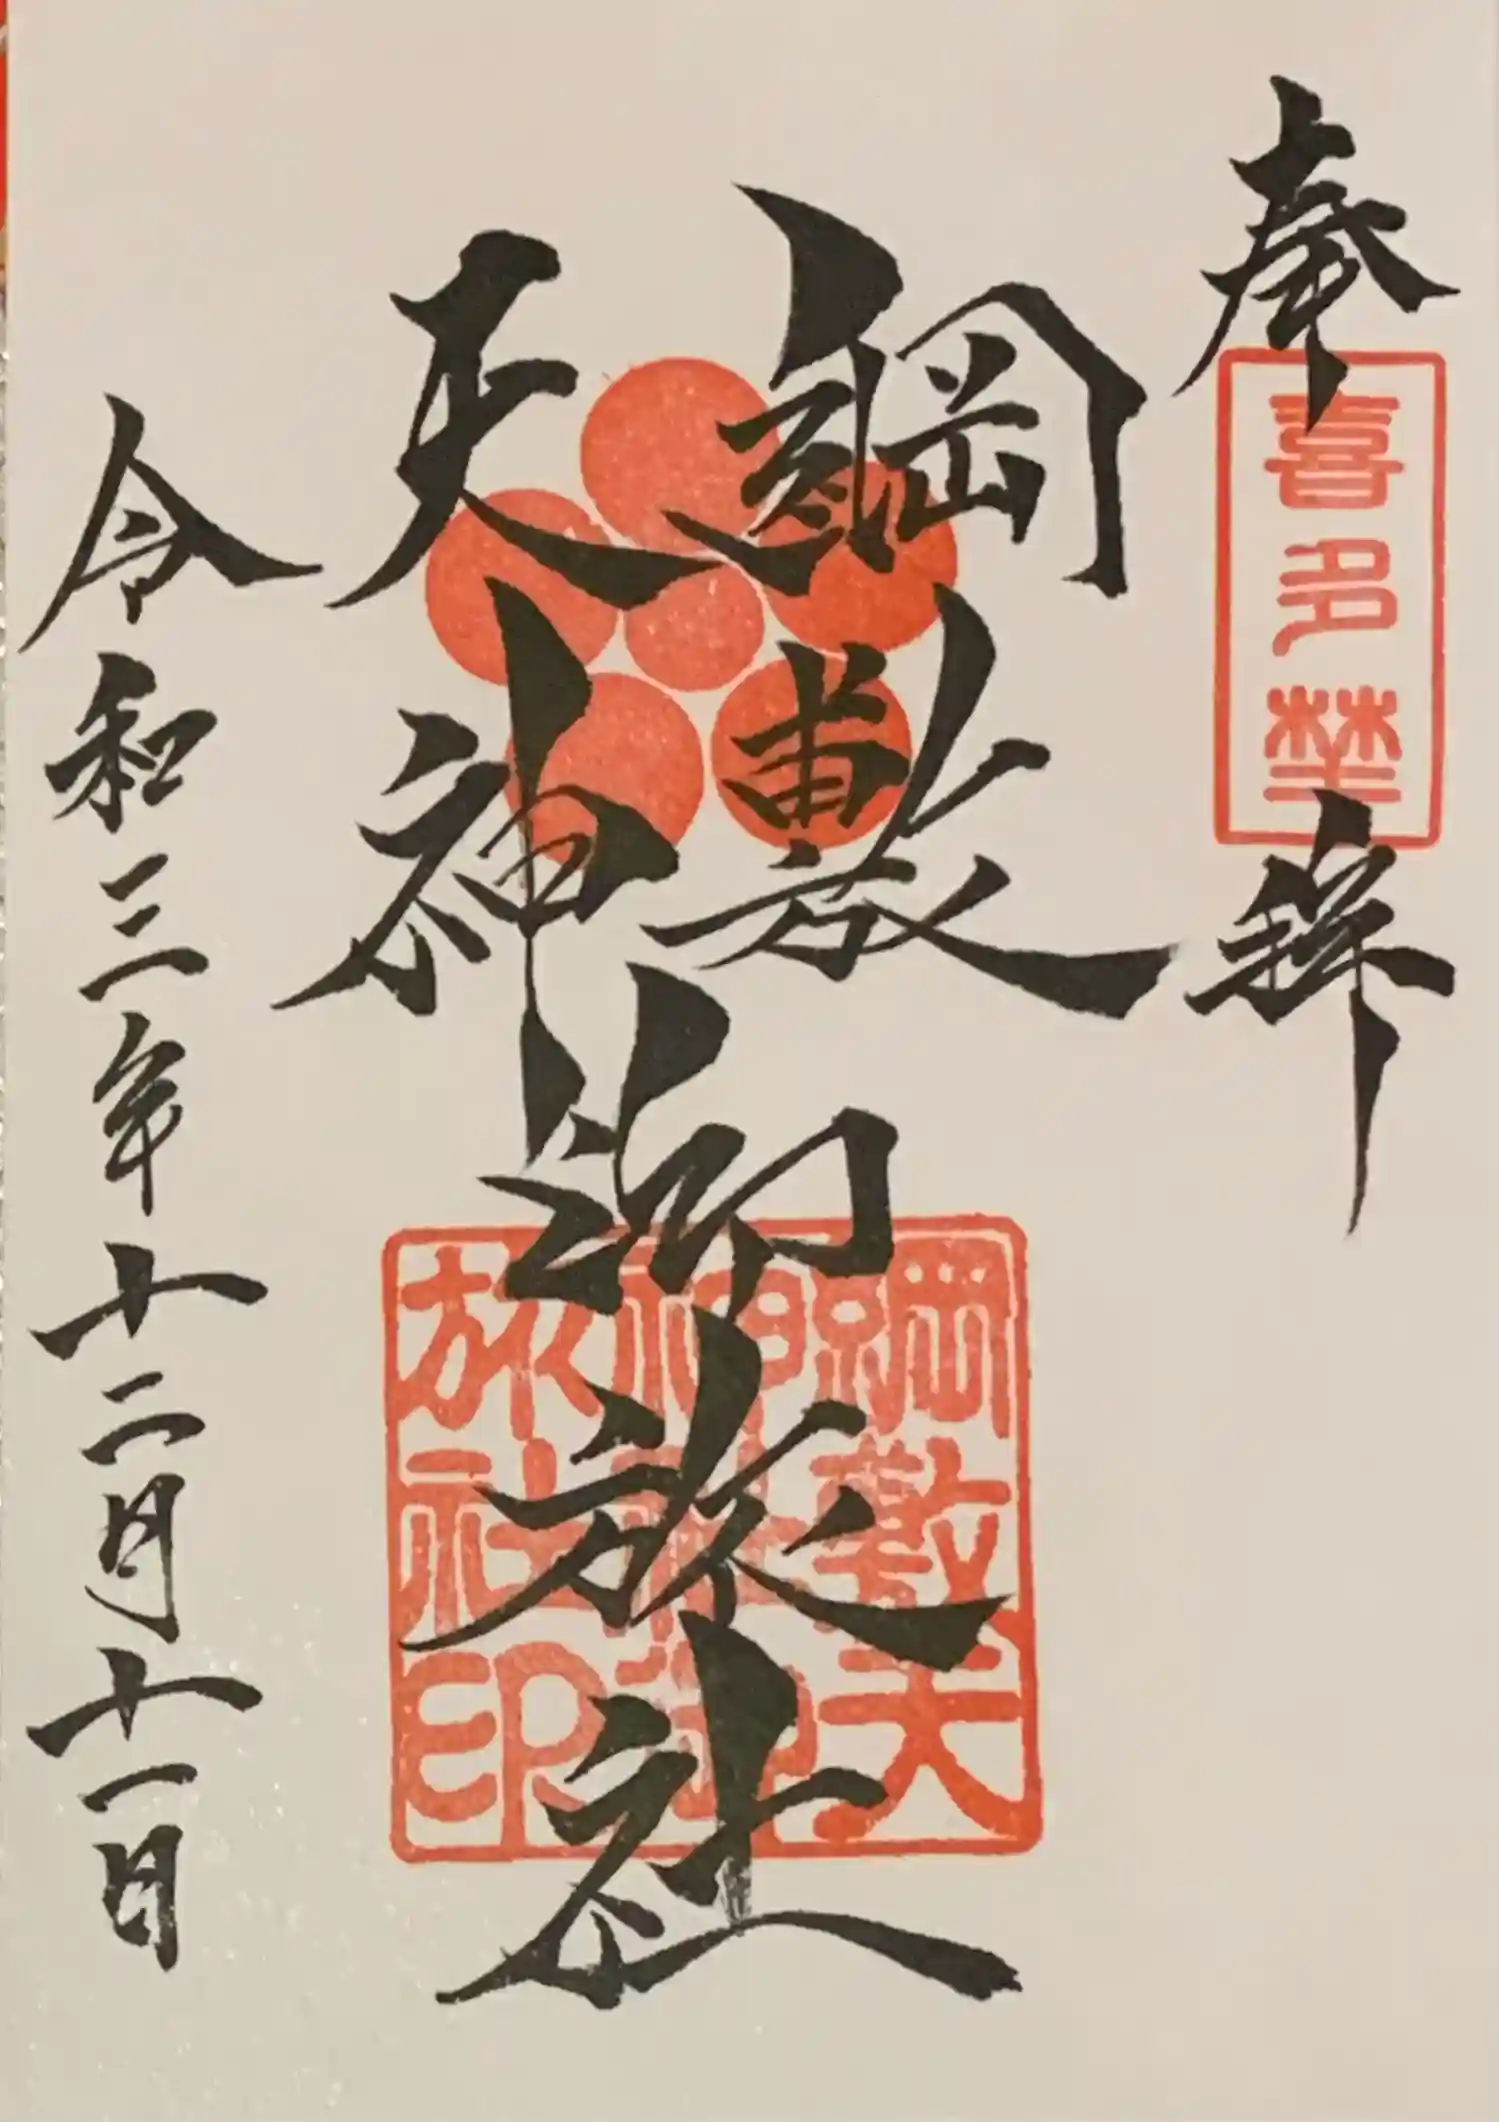 奉拜
喜多埜
綱敷
天神
御旅社
綱敷天
神社御
旅社印
令和三年十二月十一日